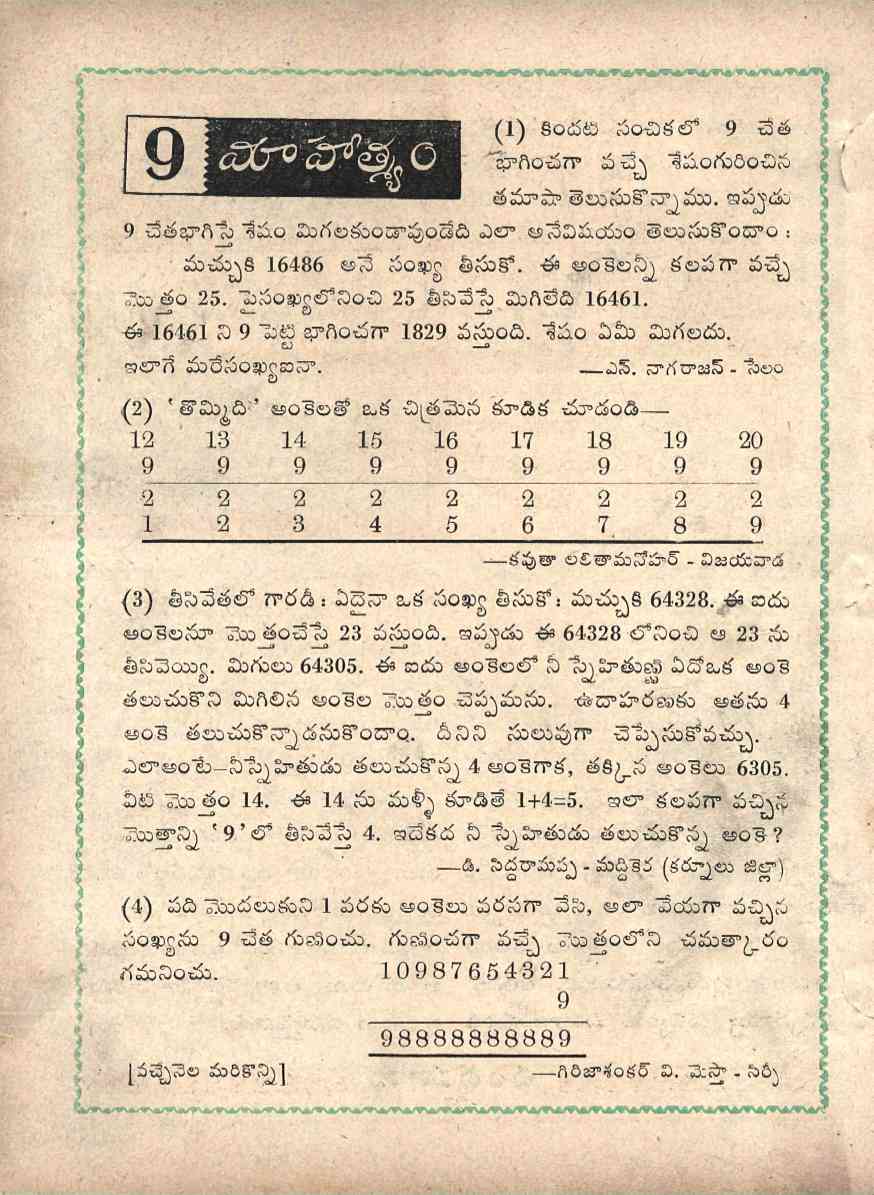 9 మాహాత్మ్యం
(1) కిందటి సంచికలో 9 చేత
భాగించగా వచ్చే శేషంగురించిన
తమాషా తెలుసుకొన్నాము. ఇప్పుడు
9 చేతభాగిస్తే శేషం మిగలకుండావుండేది ఎలా అనేవిషయం తెలుసుకొందాం :
మచ్చుకి 16486 అనే సంఖ్య తీసుకో. ఈ అంకెలన్నీ కలపగా వచ్చే
మొత్తం 25. పైసంఖ్యలోనించి 25 తీసివేస్తే మిగిలేది 16461.
ఈ 16461 ని 9 పెట్టి భాగించగా 1829 వస్తుంది. శేషం ఏమీ మిగలదు.
ఇలాగే మరేసంఖ్యఐనా.
—ఎన్. నాగరాజన్ - సేలం
(2) ‘తొమ్మిది’ అంకెలతో ఒక చిత్రమైన కూడిక చూడండి—
12 13 14 15 16 17 18 19 20
9 9 9 9 9 9 9 9 9
2 2 2 2 2 2 2 2 2
1 2 3 4 5 6 7 8 9
—కవుతా లలితామనోహర్ - విజయవాడ
(3) తీసివేతలో గారడీ : ఏదైనా ఒక సంఖ్య తీసుకో : మచ్చుకి 64328. ఈ ఐదు
అంకెలనూ మొత్తంచేస్తే 23 వస్తుంది. ఇప్పుడు ఈ 64328 లోనించి ఆ 23 ను
తీసివెయ్యి. మిగులు 64305. ఈ ఐదు అంకెలలో నీ స్నేహితుణ్ణి ఏదోఒక అంకె
తలుచుకొని మిగిలిన అంకెల మొత్తం చెప్పమను. ఉదాహరణకు అతను 4
అంకె తలుచుకొన్నాడనుకొందాం. దీనిని సులువుగా చెప్పేసుకోవచ్చు.
ఎలాఅంటే—నీస్నేహితుడు తలుచుకొన్న 4 అంకెగాక, తక్కిన అంకెలు 6305.
వీటి మొత్తం 14. ఈ 14 ను మళ్ళీ కూడితే 1+4=5. ఇలా కలపగా వచ్చిన
మొత్తాన్ని ‘9’లో తీసివేస్తే 4. ఇదేకద నీ స్నేహితుడు తలుచుకొన్న అంకె ?
—డి. సిద్దరామప్ప - మద్దికెర (కర్నూలు జిల్లా)
(4) పది మొదలుకుని 1 వరకు అంకెలు వరసగా వేసి, అలా వేయగా వచ్చిన
సంఖ్యను 9 చేత గుణించు. గుణించగా వచ్చే మొత్తంలోని చమత్కారం
గమనించు.
10987654321
9
98888888889
[వచ్చేనెల మరికొన్ని]
—గిరిజాశంకర్ వి. మెస్తా - సిర్సీ